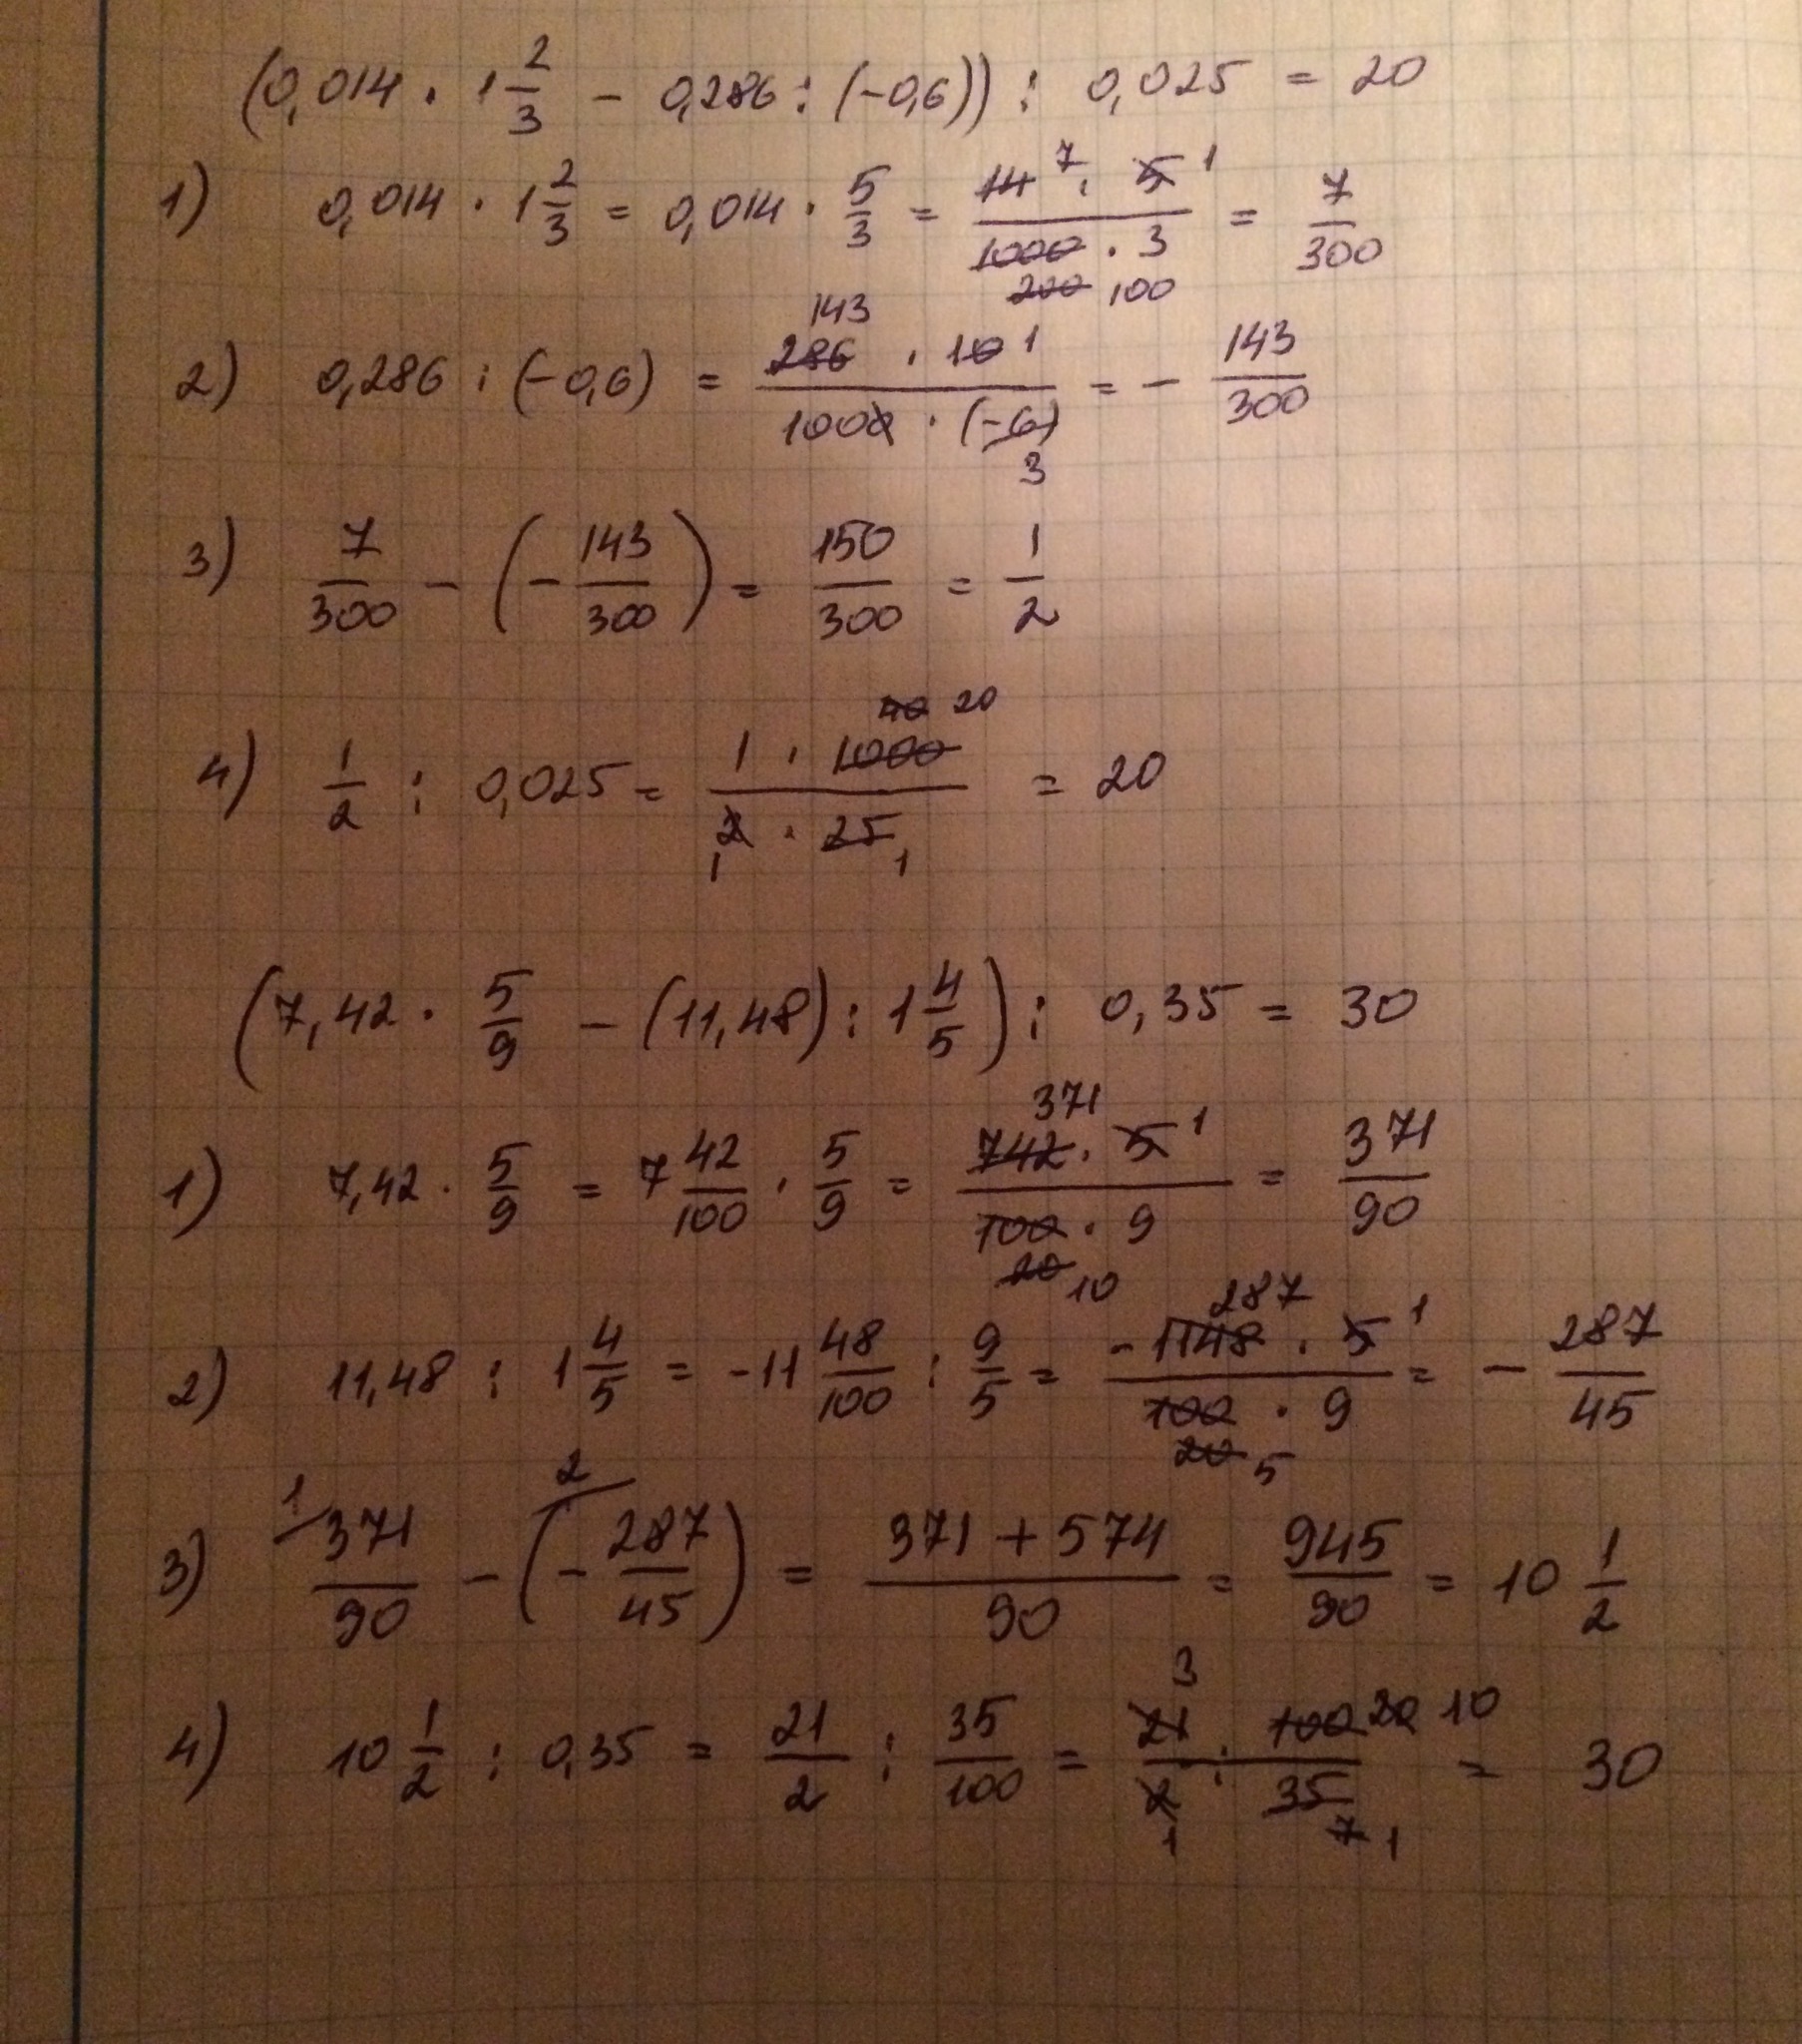 (0,014 · 1 2/3 − 0,286 : (−0,6)) : 0,025 = 20
1) 0,014 · 1 2/3 = 0,014 · 5/3 = (14 7 · 5 1)/(1000 · 3 200 100) = 7/300
2) 0,286 : (−0,6) = (143 286 · 10 1)/(1000 · (−6) 3) = − 143/300
3) 7/300 − (− 143/300) = 150/300 = 1/2
4) 1/2 : 0,025 = (1 · 1000 40 20)/(2 · 25 1 1) = 20
(7,42 · 5/9 − (11,48) : 1 4/5) : 0,35 = 30
1) 7,42 · 5/9 = 7 42/100 · 5/9 = (371 742 · 5 1)/(100 · 9 20 10) = 371/90
2) 11,48 : 1 4/5 = −11 48/100 : 9/5 = (287 −1148 · 5 1)/(100 · 9 20 5) = − 287/45
3) 1 371/90 − 2 (− 287/45) = (371 + 574)/90 = 945/90 = 10 1/2
4) 10 1/2 : 0,35 = 21/2 : 35/100 = (3 21)/(2 1) : (100 20 10)/(35 7 1) = 30